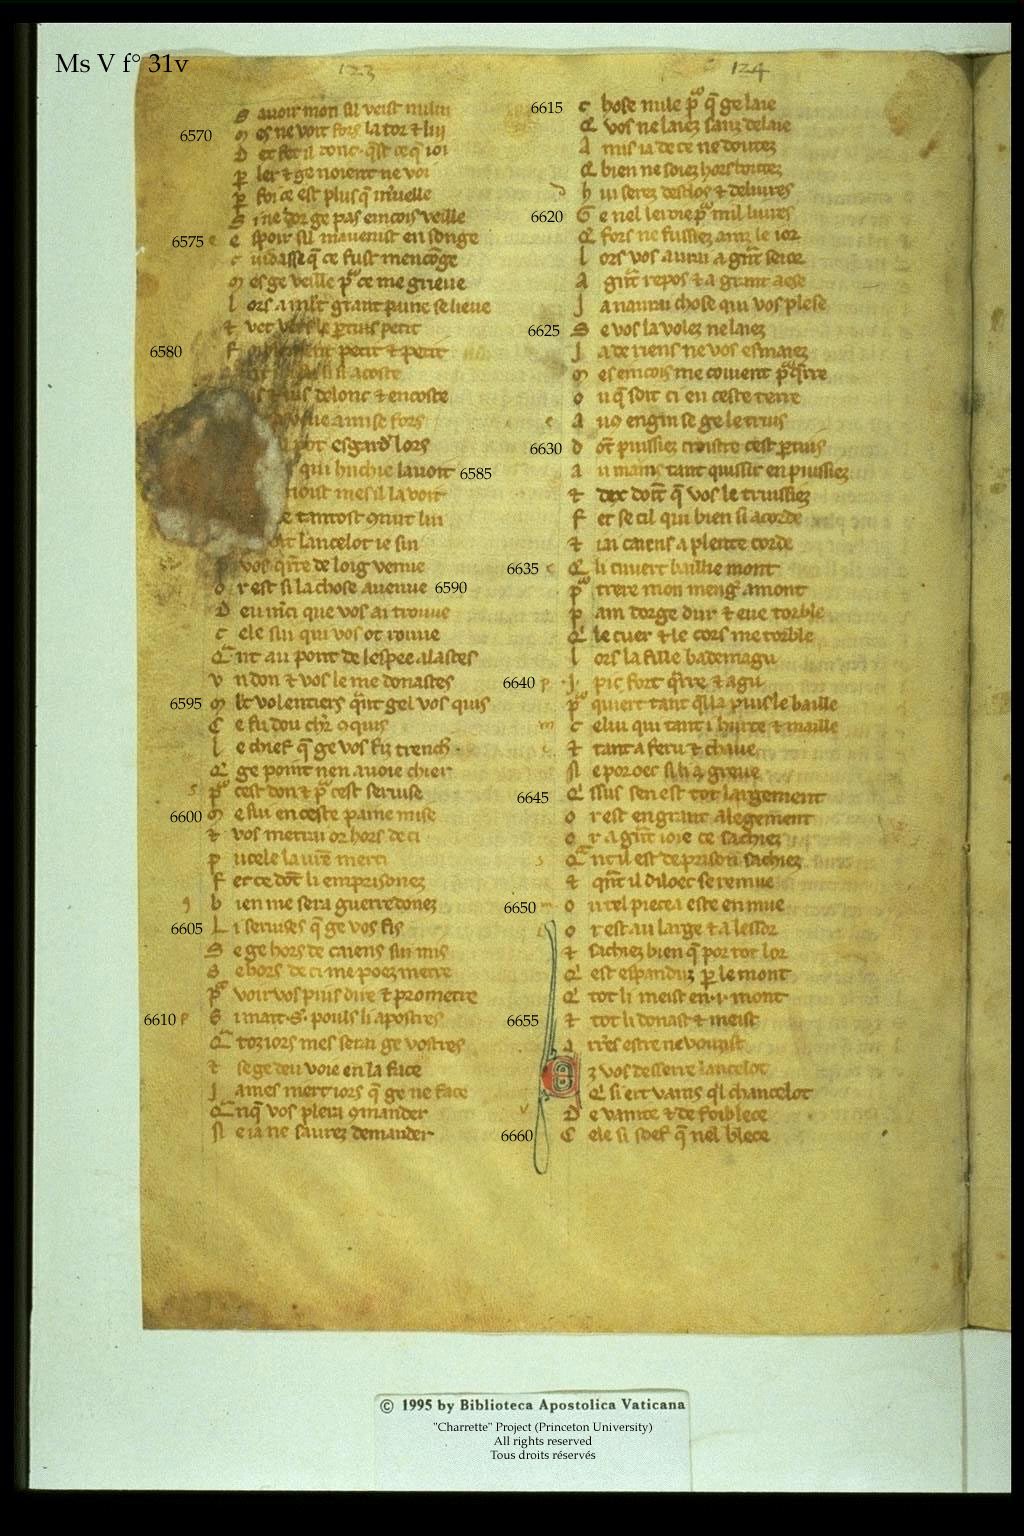 Ms V f° 31v
123
124
S avoir mon sil veist nului
6570 m es ne voit fors la tor & lui
D et fet il donc qˉst ce qˉ ioi
p ler & ge noient ne voi
p foi ce est plus qˉ mˉuelle
S i ne dor ge pas eincois veille
6575 e spoir sil mauenist en songe
c uidasse qˉ ce fust mencoge
m es ge veille pͦ ce me grieue
l ors a mlˉt grant peine se lieue
& vet le ptuis petit
6580 petit & petit
si acoste
delonc & encoste
a mise fors
pot esgardˀ lors
qui huchie lauoit 6585
mes il la voit
tantost ɔnut lui
lancelot ie sui
p vos qˉrre de loig venue
o r est si la chose auenue 6590
D eu mˉci que vos ai trouue
c ele sui qui vos ot rouue
Qˉ nt au pont de lespee alastes
v n don & vos le me donastes
6595 m lˉt volentiers qˉnt gel vos quis
C e fu dou chlˉr ɔquis
l e chief qˉ ge vos fiz trenchˀ
Q ge point nen auoie chier
s pͦ cest don & pͦ cest seruise
6600 m e sui en ceste paine mise
& vos metrai or hors de ci
p ucele la urˉe merci
f et ce dotˉ li emprisonez
9 b ien me sera guerredonez
6605 L i seruises qˉ ge vos fis
S e ge hors de caiens sui mis
S e hors de ci me poez metre
pͦ voir vos puis dire & prometre
6610 p S i mait .S. pouls li apostres
Q toziors mes serai ge vostres
& se ge deu voie en la face
J ames niert iors qˉ ge ne face
Q nqˉ vos pleira ɔmander
N e ia ne saurez demander
6615 c hose nule pͦ qˉ ge laie
Q vos ne laiez sanz delaie
A mis ia de ce ne doutez
Q bien ne soiez hors boutez
h ui serez desclos & deliures
6620 G e nel leroie pͦ mil liures
Q fors ne fussiez ainz le ior
l ors vos aurai a gˉnt seior
A gˉnt repos & a grant aese
J a naurai chose qui vos plese
6625 S e vos la volez ne laiez
J a de riens ne vos esmaiez
m es eincois me couient pͦqˉrre
o u qˉ soit ci en ceste terre
c A uc engin se ge le truis
6630 d otˉ puissiez croistre cest ptuis
a u mains tant quissir en puissiez
& dex doitˉ qˉ vos le truissiez
f et se cil qui bien si acorde
& iai caiens a plente corde
6635 c Q li cuuert baillie mont
pͦ trere mon mengˀ amont
p ain dorge dur & eue torble
Q le cuer & le cors me torble
l ors la fille bademagu
6640 p . J . pic fort qˉrre & agu
pͦ quiert tant qˉl la puis le baille
m c elui qui tant i hurte & maille
c & tant a feru & chaue
N e poroec si li a greue
6645 Q issus sen est tot largement
o r est en grant alegement
o r a gˉnt ioie ce sachiez
s Qˉ nt il est de prison sachiez
& qˉnt il diloec se remue
6650 m o u tel piecea este en mue
l o r est au large & a lessor
& sachiez bien qˉ por tot lor
Q est espanduz p le mont
Q tot li meist en .i. mont
6655 & tot li donast & meist
a rreˀs estre ne vousist
E z vos desserre lancelot
Q si ert vains ql chancelot
v D e vanite & de foiblece
6660 C ele si soef qˉ nel blece
© 1995 by Biblioteca Apostolica Vaticana
"Charrette" Project (Princeton University)
All rights reserved
Tous droits réservés